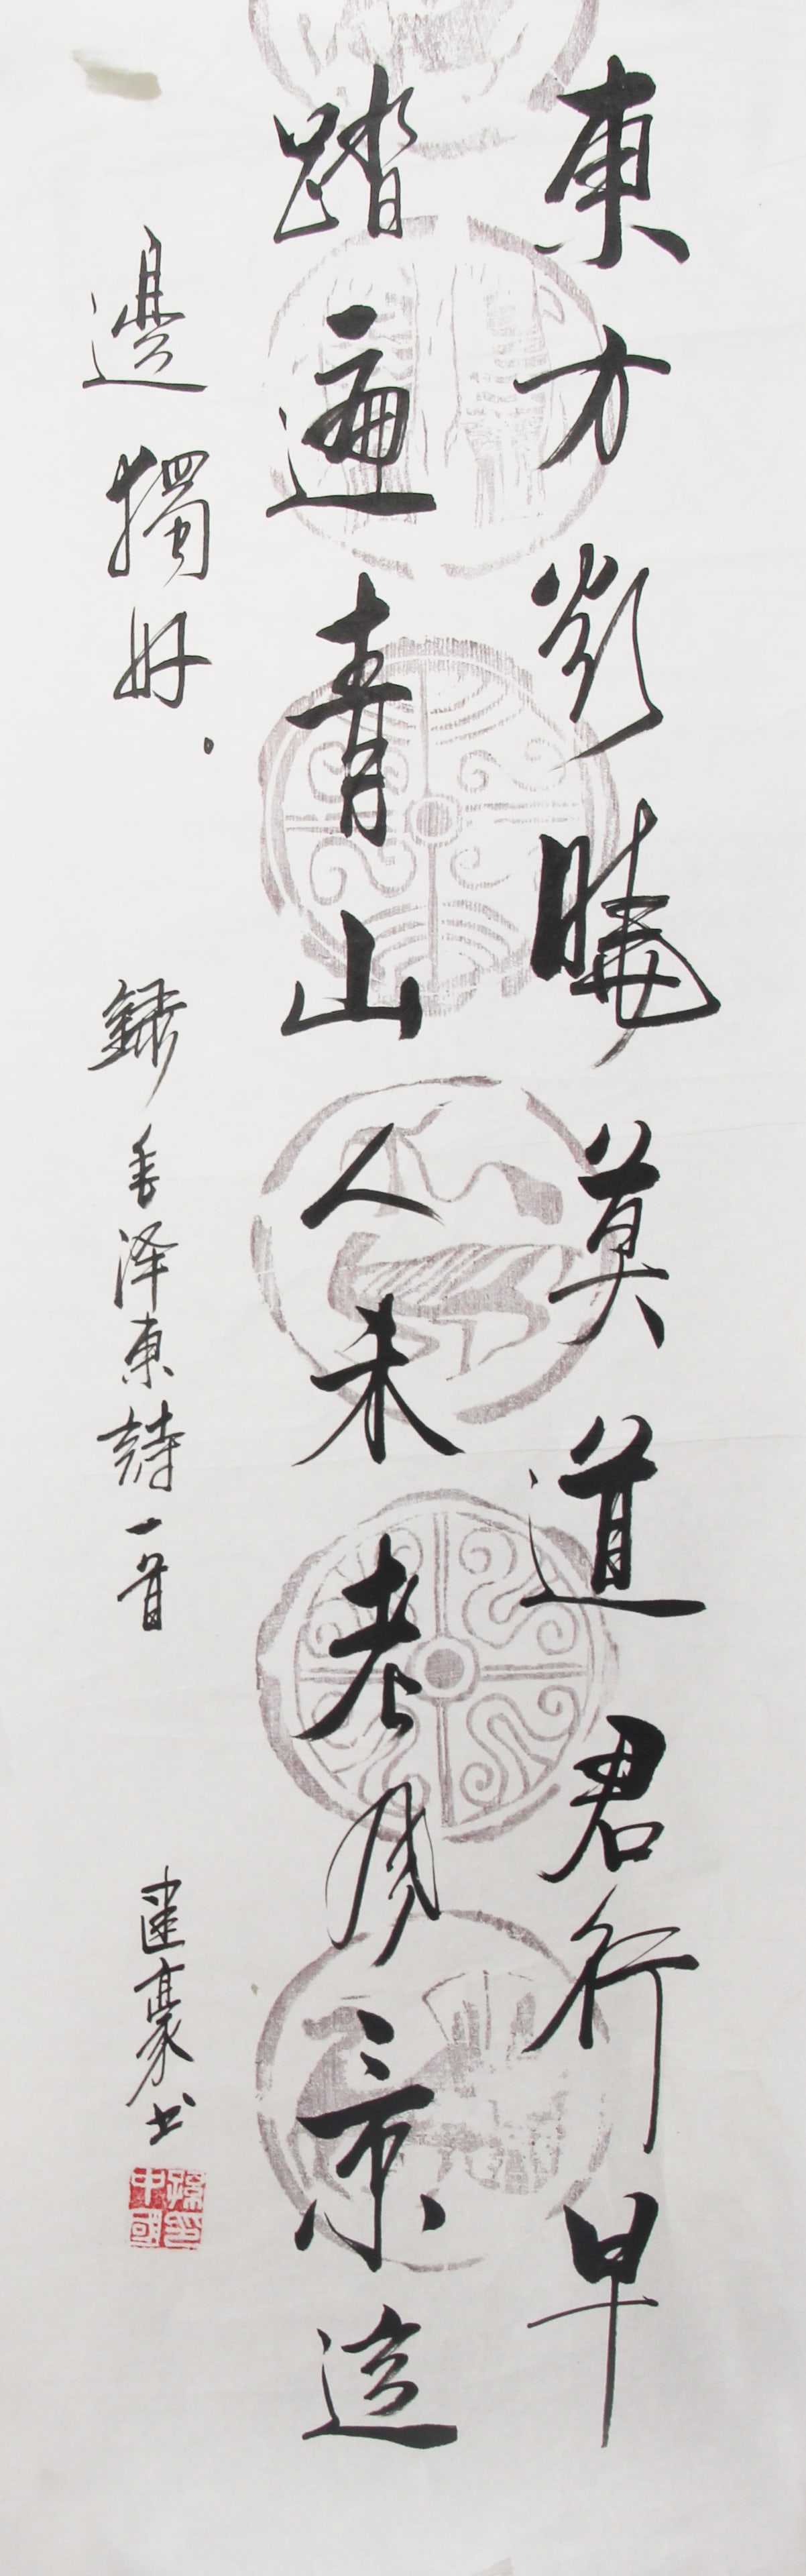 東方欲曉莫道君行早
踏遍青山人未老風景這
邊獨好. 錄毛泽東詩一首 建豪书
中國